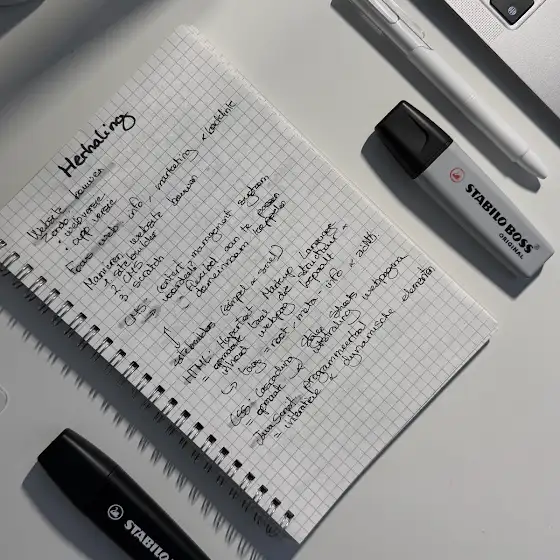 Herhaling
Website bouwen
webversie
app versie
Focus web: info, marketing <backlink
Manieren website bouwen
1. sitebuilder
2. CMS
3. scratch
CMS: content managment system
voordeel?
flexibel aan te passen
sitebuilder (simpel & snel)
HTML: Hypertext Markup Language
= opmaak taal die structuur &
inhoud webpag bepaalt
Tags = root, meta, info &
CSS: Cascading Style Sheets
= opmaak uitstraling webpagina
JavaScript: programmeertaal
= interactieve & dynamische elementen
STABILO BOSS
ORIGINAL
STABILO